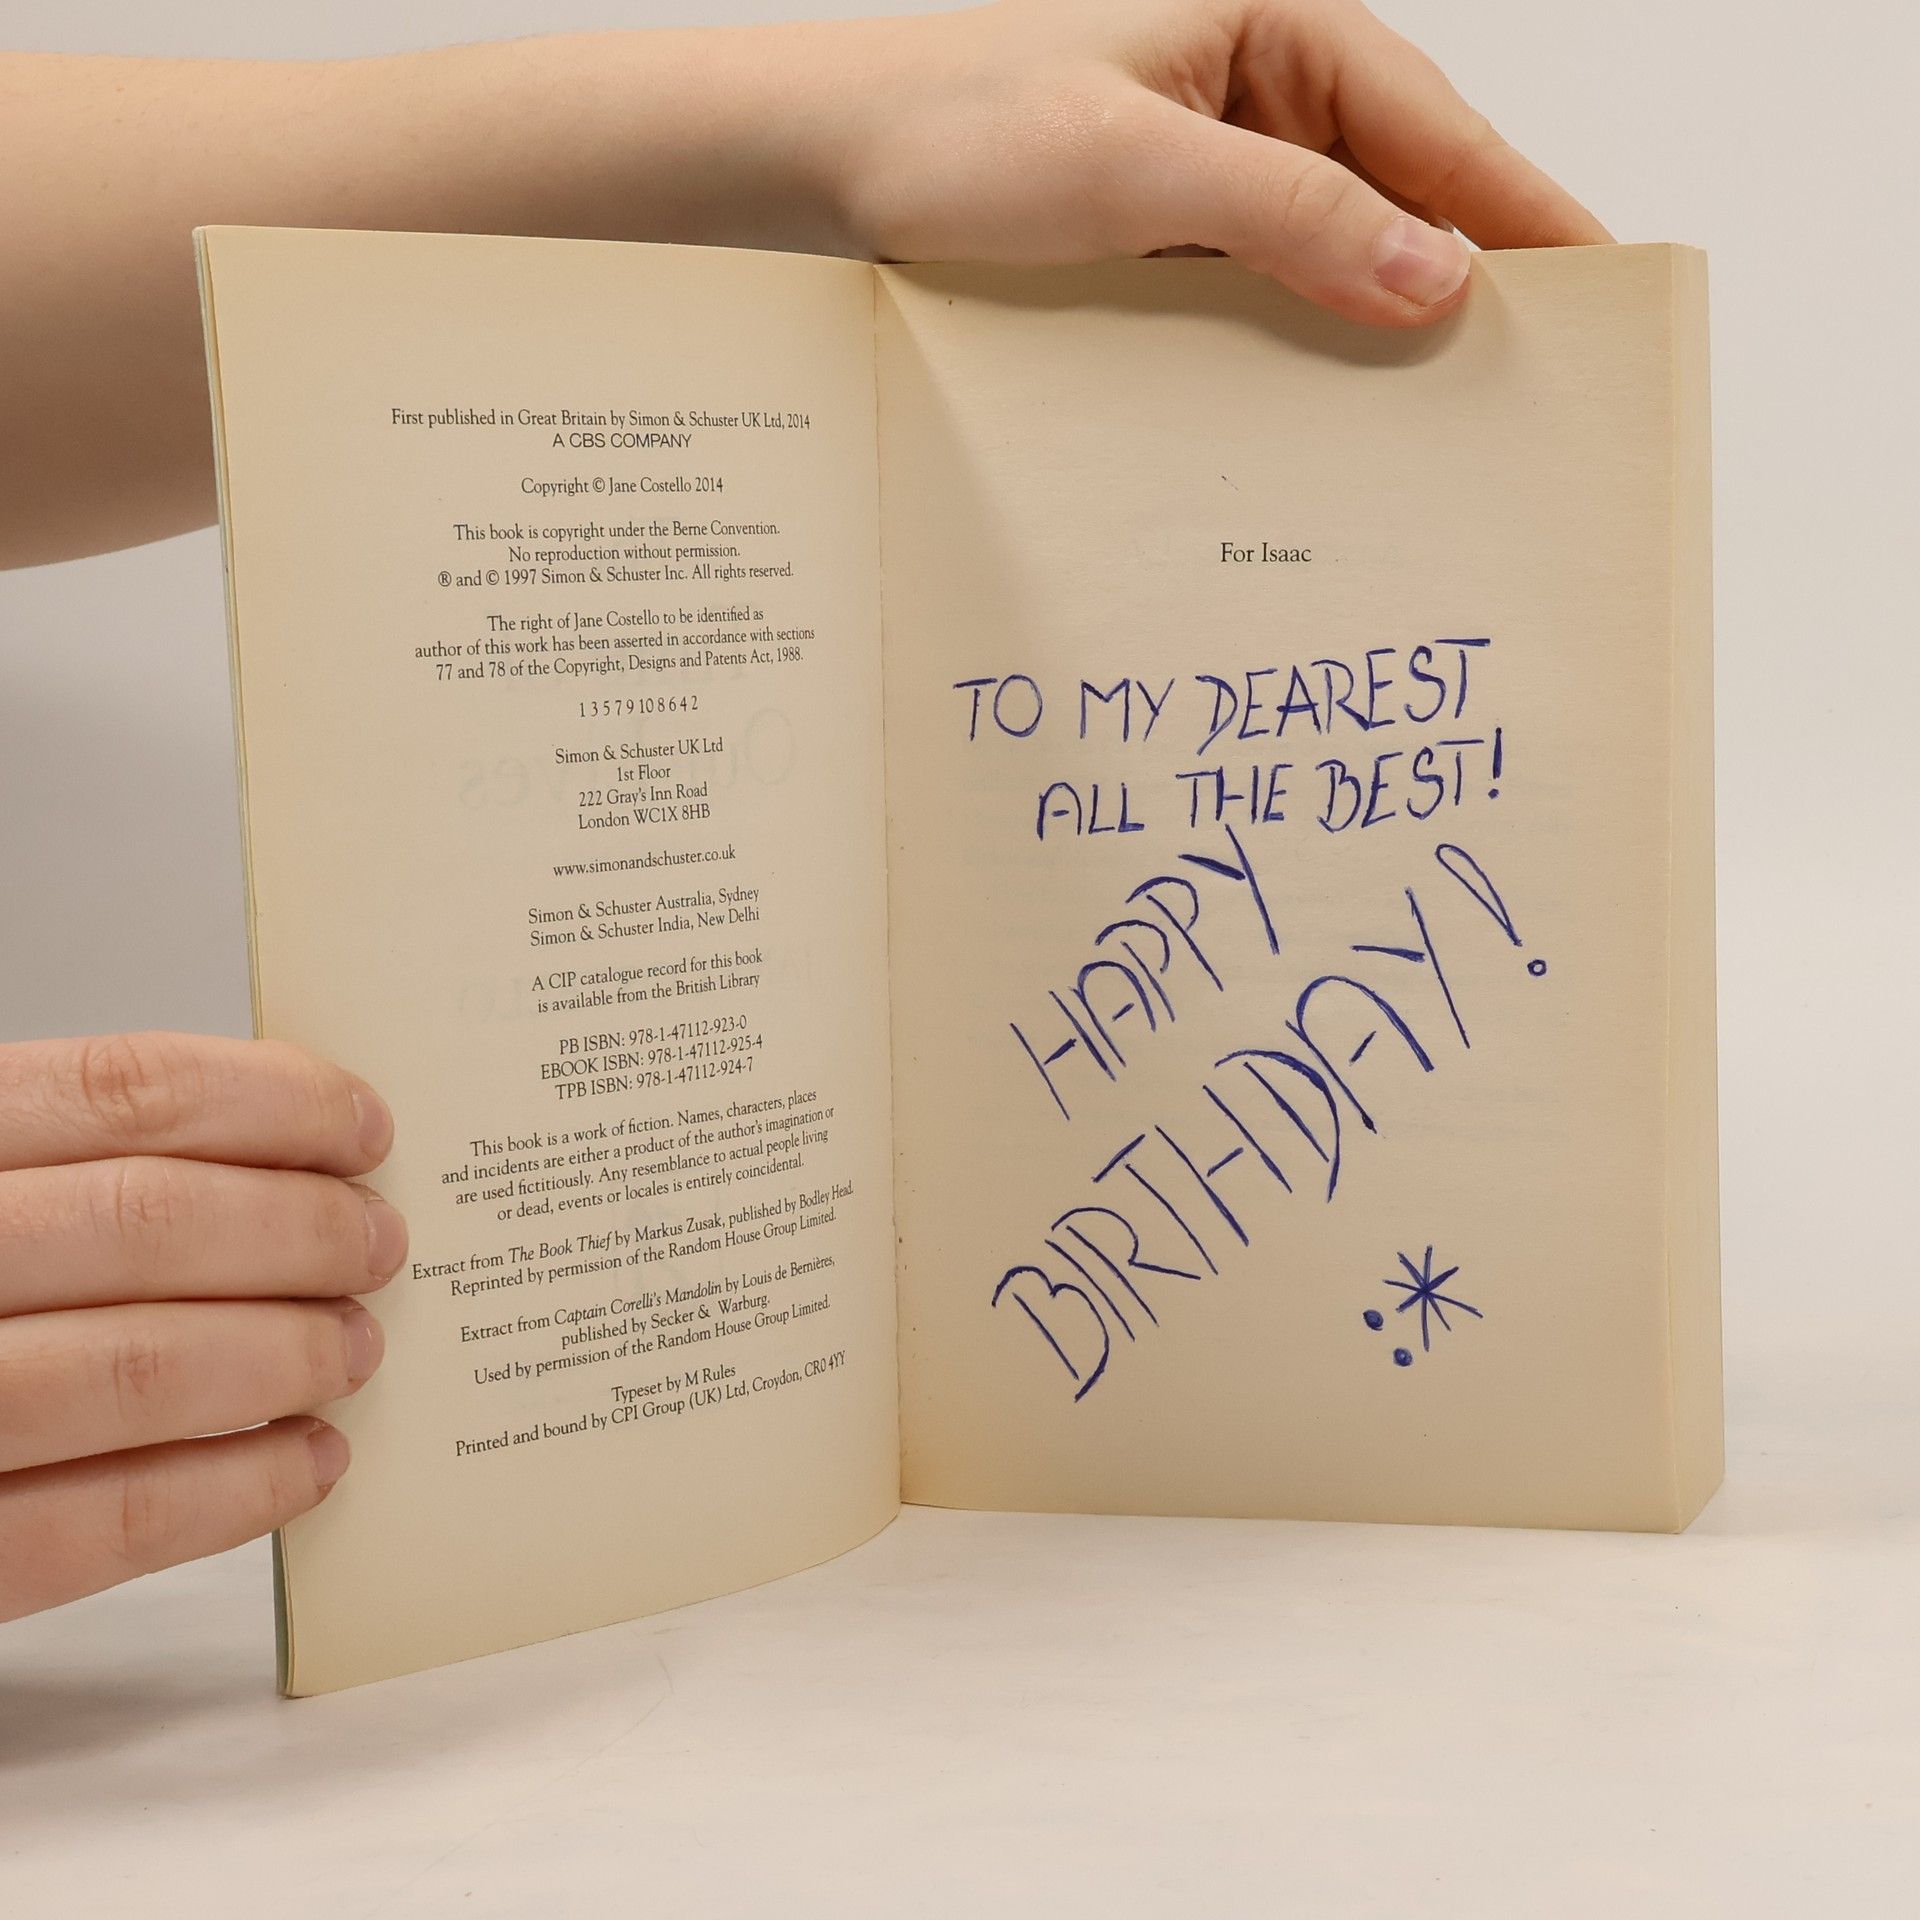 First published in Great Britain by Simon & Schuster UK Ltd, 2014
A CBS COMPANY
Copyright © Jane Costello 2014
This book is copyright under the Berne Convention.
No reproduction without permission.
® and © 1997 Simon & Schuster Inc. All rights reserved.
The right of Jane Costello to be identified as
author of this work has been asserted in accordance with sections
77 and 78 of the Copyright, Designs and Patents Act, 1988.
1 3 5 7 9 10 8 6 4 2
Simon & Schuster UK Ltd
1st Floor
222 Gray's Inn Road
London WC1X 8HB
www.simonandschuster.co.uk
Simon & Schuster Australia, Sydney
Simon & Schuster India, New Delhi
A CIP catalogue record for this book
is available from the British Library
PB ISBN: 978-1-47112-923-0
EBOOK ISBN: 978-1-47112-925-4
TPB ISBN: 978-1-47112-924-7
This book is a work of fiction. Names, characters, places
and incidents are either a product of the author's imagination or
are used fictitiously. Any resemblance to actual people living
or dead, events or locales is entirely coincidental.
Extract from The Book Thief by Markus Zusak, published by Bodley Head.
Reprinted by permission of the Random House Group Limited.
Extract from Captain Corelli's Mandolin by Louis de Bernières,
published by Secker & Warburg.
Used by permission of the Random House Group Limited.
Typeset by M Rules
Printed and bound by CPI Group (UK) Ltd, Croydon, CR0 4YY
For Isaac
TO MY DEAREST
ALL THE BEST!
HAPPY
BIRTHDAY!
:*